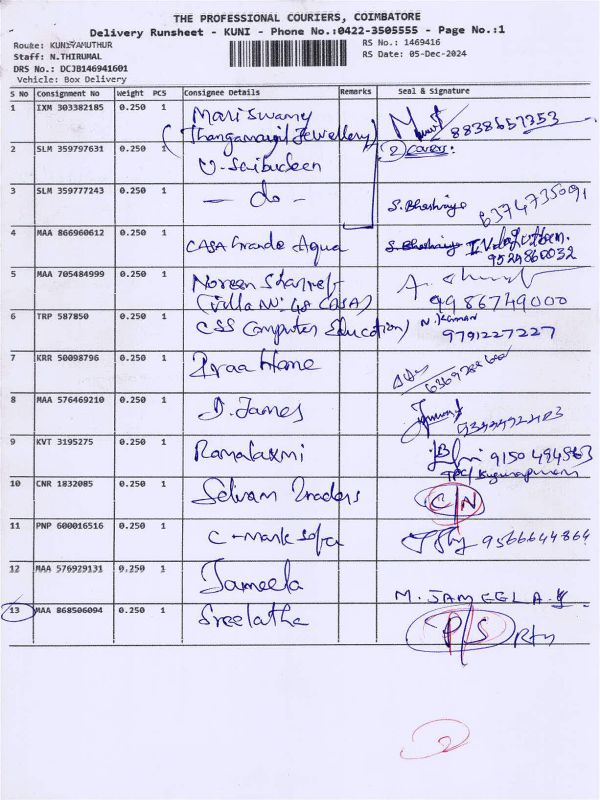 THE PROFESSIONAL COURIERS, COIMBATORE
Delivery Runsheet - KUNI - Phone No.:0422-3505555 - Page No.:1
Route: KUNIYAMUTHUR
RS No.: 1469416
Staff: N.THIRUMAL
RS Date: 05-Dec-2024
DRS No.: DCJB146941601
Vehicle: Box Delivery
S No Consignment No Weight PCS Consignee Details Remarks Seal & Signature
1 IXM 303382185 0.250 1 Mariswamy 8838657353
(Thangamayil Jewellery)
2 SLM 359797631 0.250 1 U. Saibudeen (2) Covers:
3 SLM 359777243 0.250 1 - do - 6374735091
4 MAA 866960612 0.250 1 CASA Grande Aqua
9524860032
5 MAA 705484999 0.250 1 Noreen
(Villa No: 48 CASA) 9986749000
6 TRP 587850 0.250 1 CSS Computer Education) N. Kannan
9791227227
7 KRR 50098796 0.250 1 Home
8 MAA 576469210 0.250 1 D. James
9 KVT 3195275 0.250 1 Ramalaxmi 9150494563
10 CNR 1832085 0.250 1 Selvam Traders C/N
11 PNP 600016516 0.250 1 C-Mark Sofa 9566644864
12 MAA 576929131 0.250 1 Jameela
M. JAMEELA
13 MAA 868506094 0.250 1 Sreelatha P/S
2